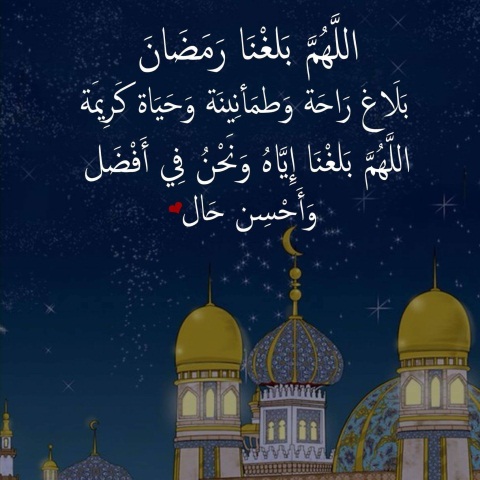 اللَّهُمَّ بَلغْنَا رَمَضَانَ
بَلَاغ رَاحَة وَطمَأنِينَة وَحَيَاة كَرِيمَة
اللَّهُمَّ بَلغْنَا إِيَّاهُ وَنَحْنُ فِي أَفْضَل
وَأَحْسِن حَال